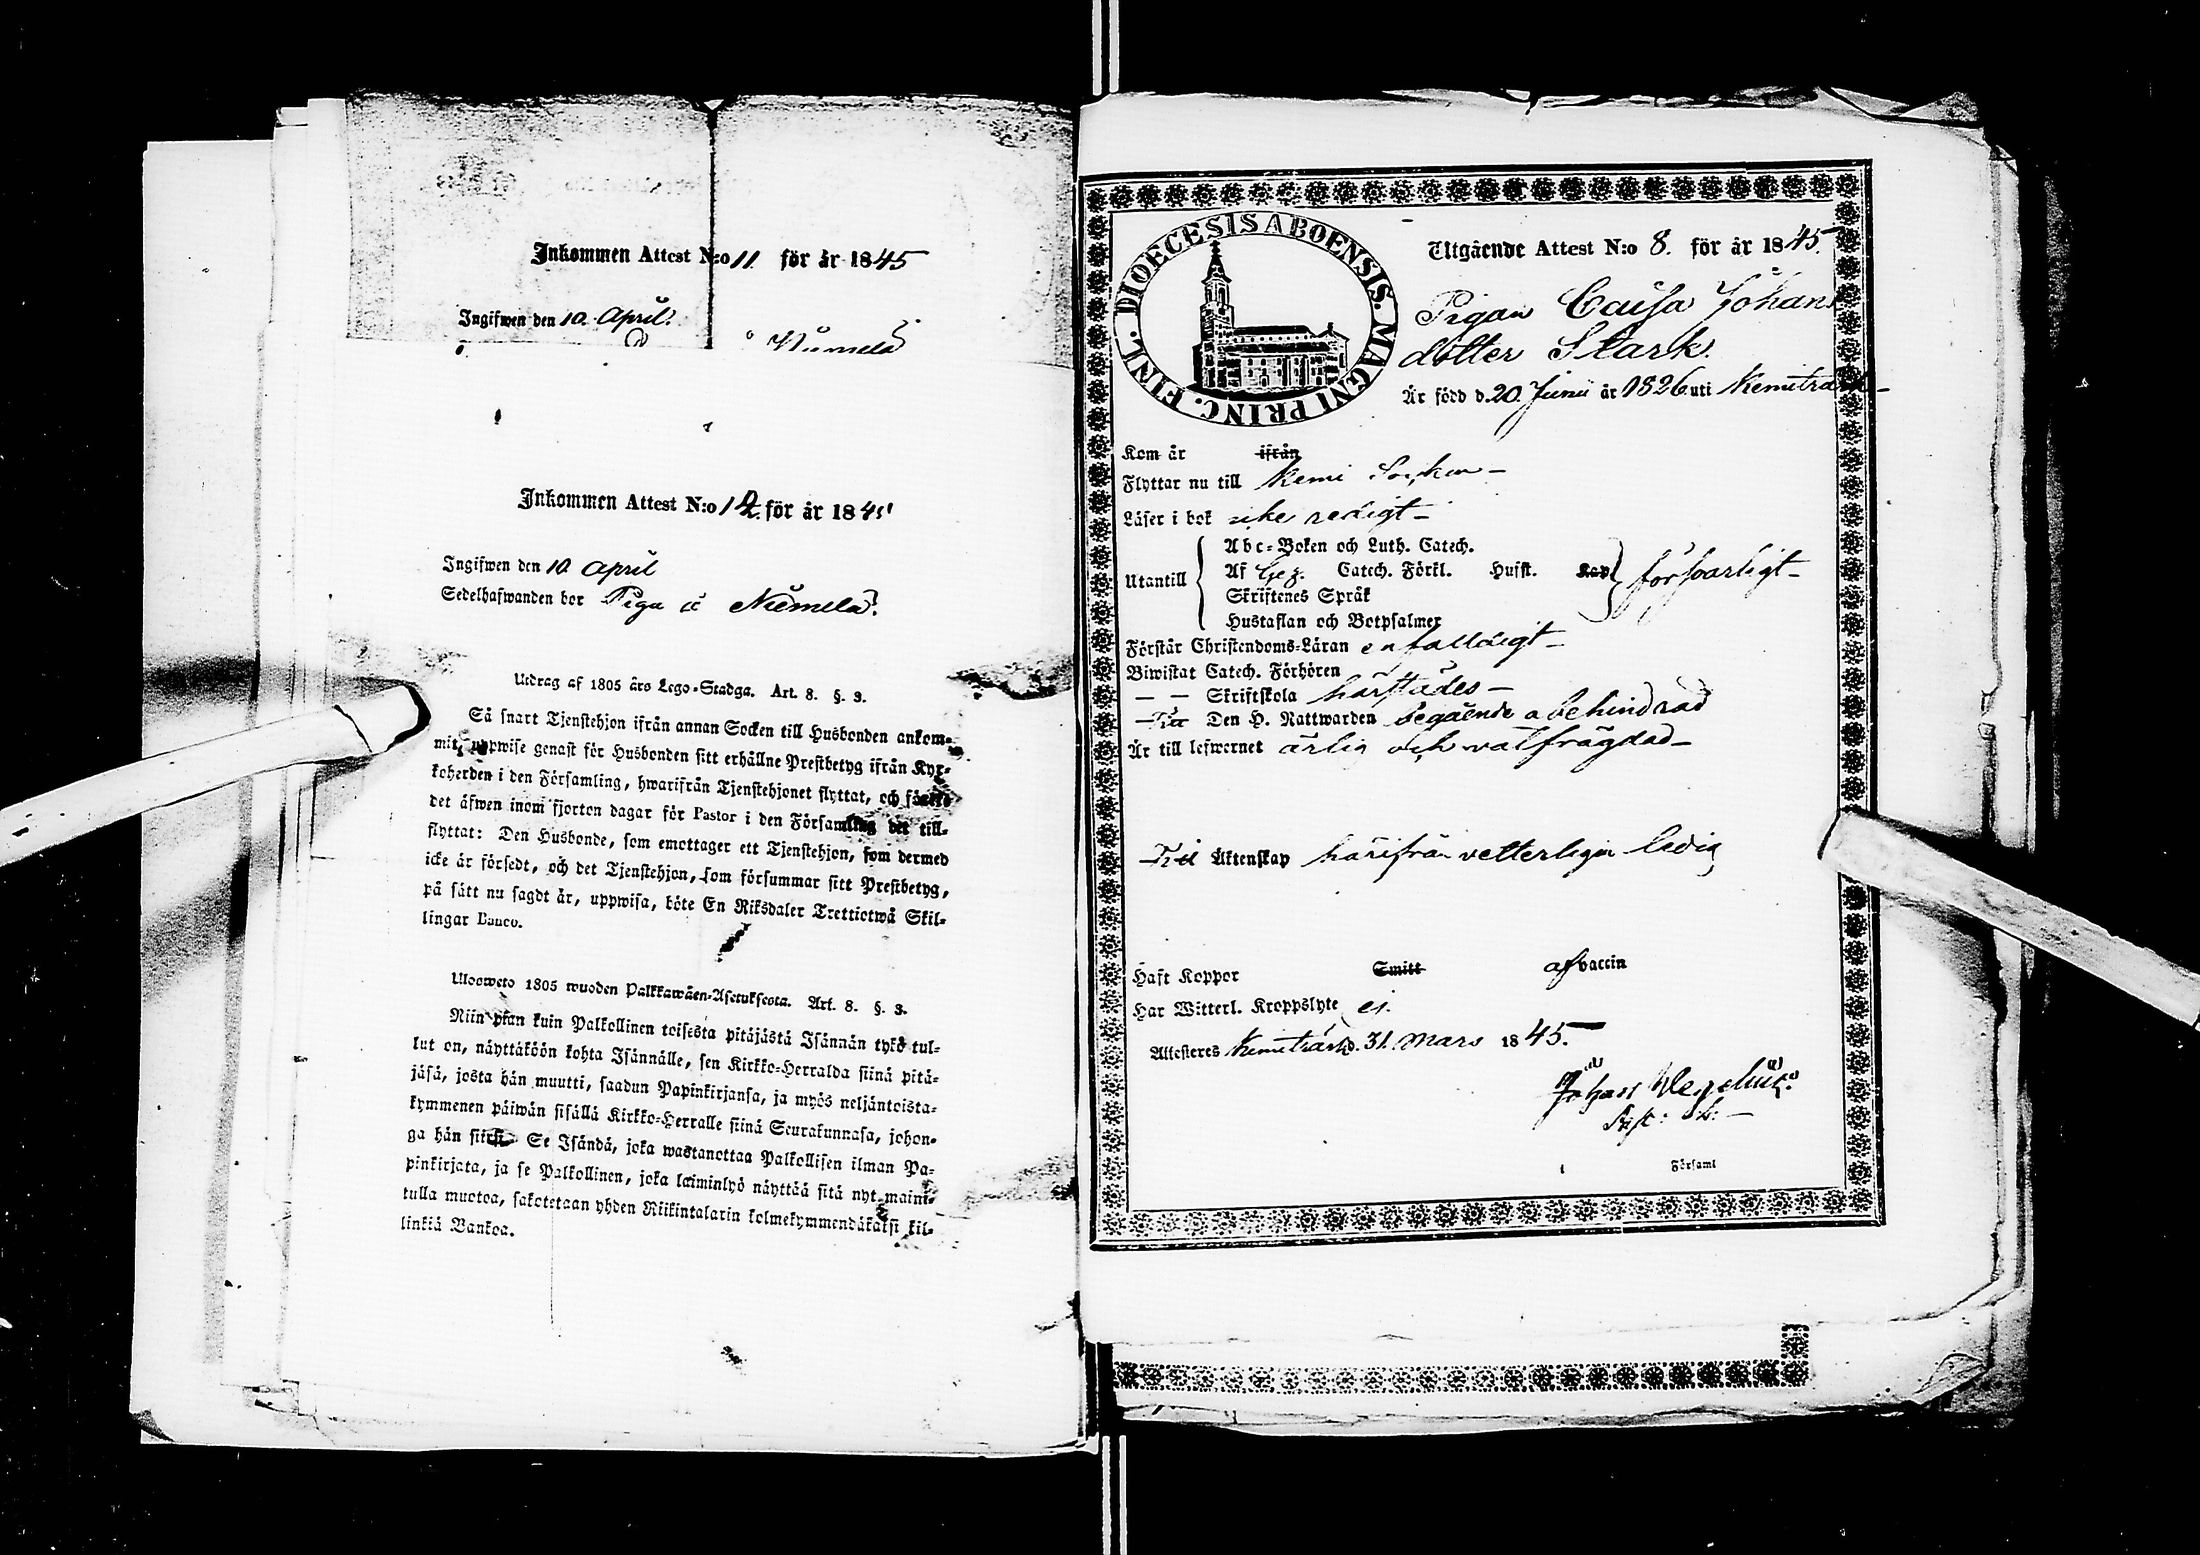 Inkommen Attest N:o 11 för år 1845
Ingifwen den 10 April.
Niemelä
Inkommen Attest N:o 12 för år 1845
Ingifwen den 10 April
Sedelhafwanden bor Piga å Niemelä.
Utdrag af 1805 års Lego-Stadga. Art. 8. §. 3.
Så snart Tjenstehjon ifrån annan Socken till Husbonden ankom-
mit, uppwise genast för Husbonden sitt erhållne Prestbetyg ifrån Kyr-
koherden i den Församling, hwarifrån Tjenstehjonet flyttat, och förete
det äfwen inom fjorton dagar för Pastor i den Församling det till-
flyttat: Den Husbonde, som emottager ett Tjenstehjon, som dermed
icke är försedt, och det Tjenstehjon, som försummar sitt Prestbetyg,
på sätt nu sagdt är, uppwisa, böte En Riksdaler Trettiotwå Skil-
lingar Banco.
Ulosweto 1805 wuoden Palkkawäen-Asetuksesta. Art. 8. §. 3.
Niin pian kuin Palkollinen toisesta pitäjästä Isännän tykö tul-
lut on, näyttäköön kohta Isännälle, sen Kirkko-Herralda siinä pitä-
jäsä, josta hän muutti, saadun Papinkirjansa, ja myös neljäntoista-
kymmenen päiwän sisällä Kirkko-Herralle siinä Seurakunnasa, johon-
ga hän siirsi. Se Isändä, joka wastanottaa Palkollisen ilman Pa-
pinkirjata, ja se Palkollinen, joka laiminlyö näyttää sitä nyt maini-
tulla muotoa, sakotetaan yhden Riikintalarin kolmekymmendäkaksi kil-
linkiä Bankoa.
DIOECESIS ABOENSIS. MAGNI PRINC. FINL.
Utgående Attest N:o 8. för år 1845.
Pigan Caisa Johans
dotter Stark.
Är född d. 20. Junii år 1826 uti Kemiträsk
Kom år ifrån
Flyttar nu till Kemi Socken –
Läser i bok icke redigt –
Utantill
Abc-Boken och Luth. Catech.
Af Catech. Förkl. Husst. Kap
Skriftenes Språk
Hustaflan och Botpsalmer
försvarligt –
Förstår Christendoms-Läran enfaldigt –
Biwistat Catech. Förhören
— — Skriftskola härstädes –
Till Den H. Nattwarden begående obehindrad
Är till lefwernet ärlig och välfrägdad –
Till Äktenskap härifrån vetterligen ledig
Haft Koppor Smitt af vaccin
Har Witterl. Kroppslyte ej.
Attesteres Kemiträsk d. 31. Mars 1845. –
Johan
Församl